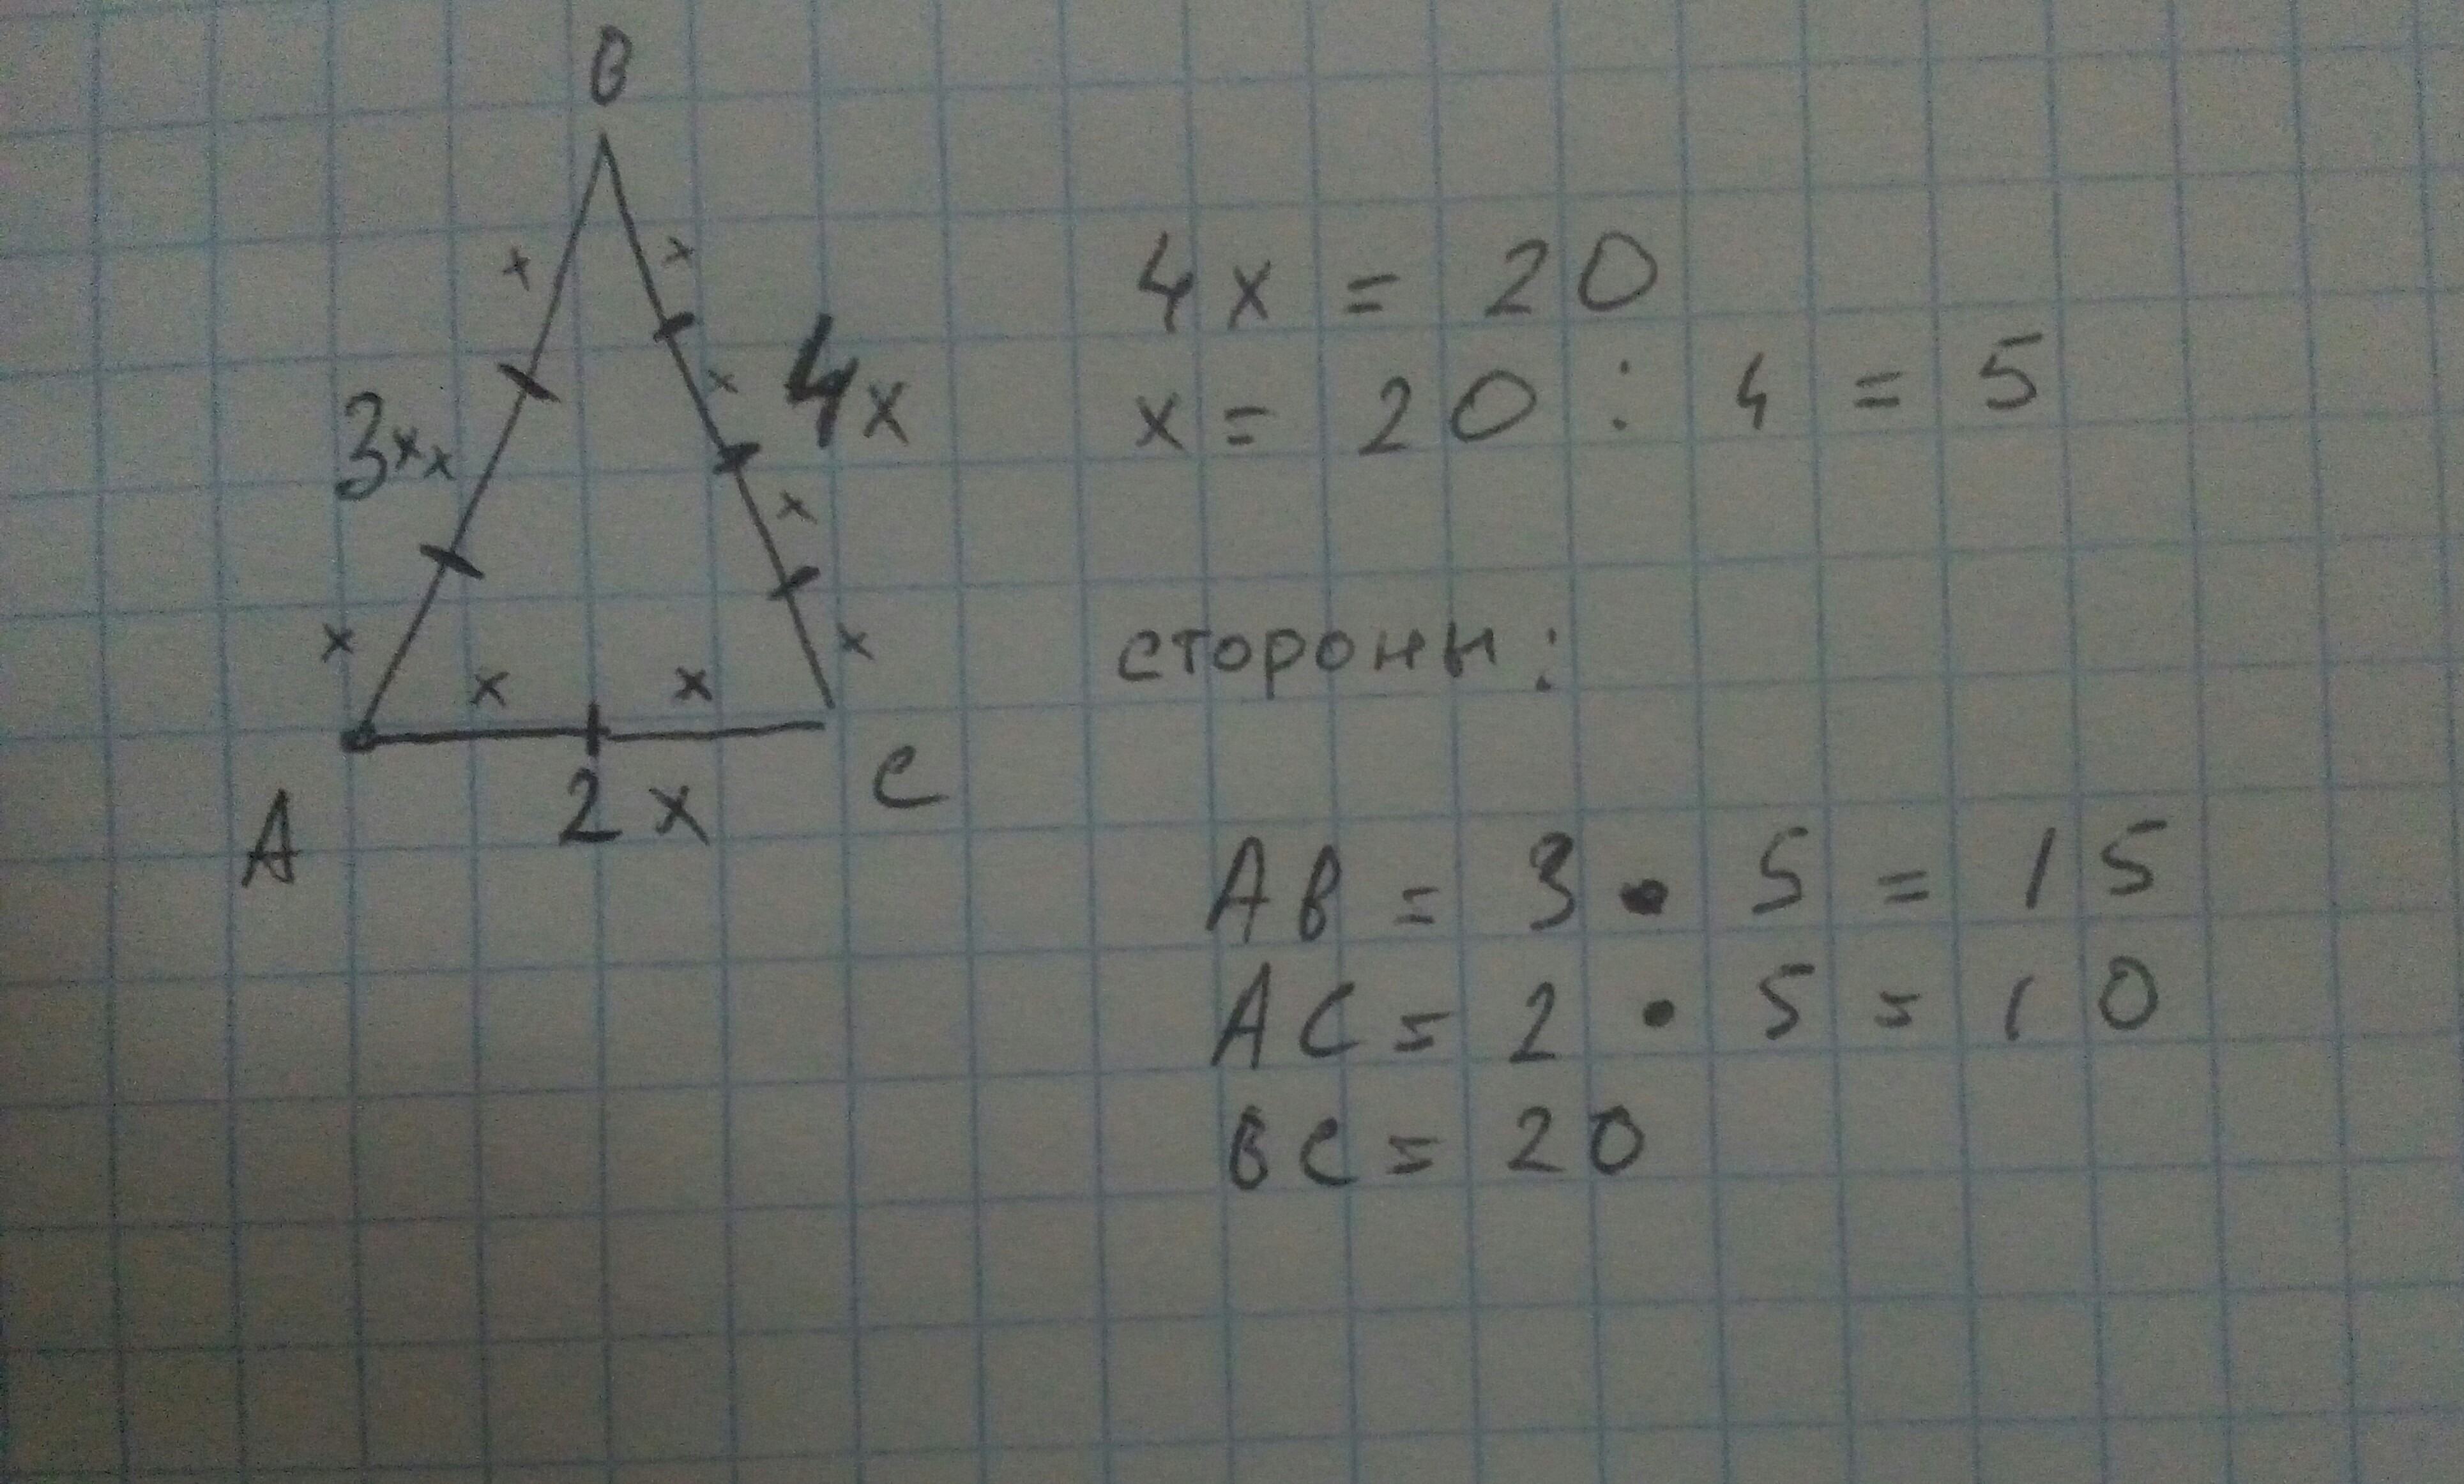 B
x x
x 4x
3x x
x
x x
x x
A 2x C
4x = 20
x = 20 : 4 = 5
стороны:
AB = 3 • 5 = 15
AC = 2 • 5 = 10
BC = 20